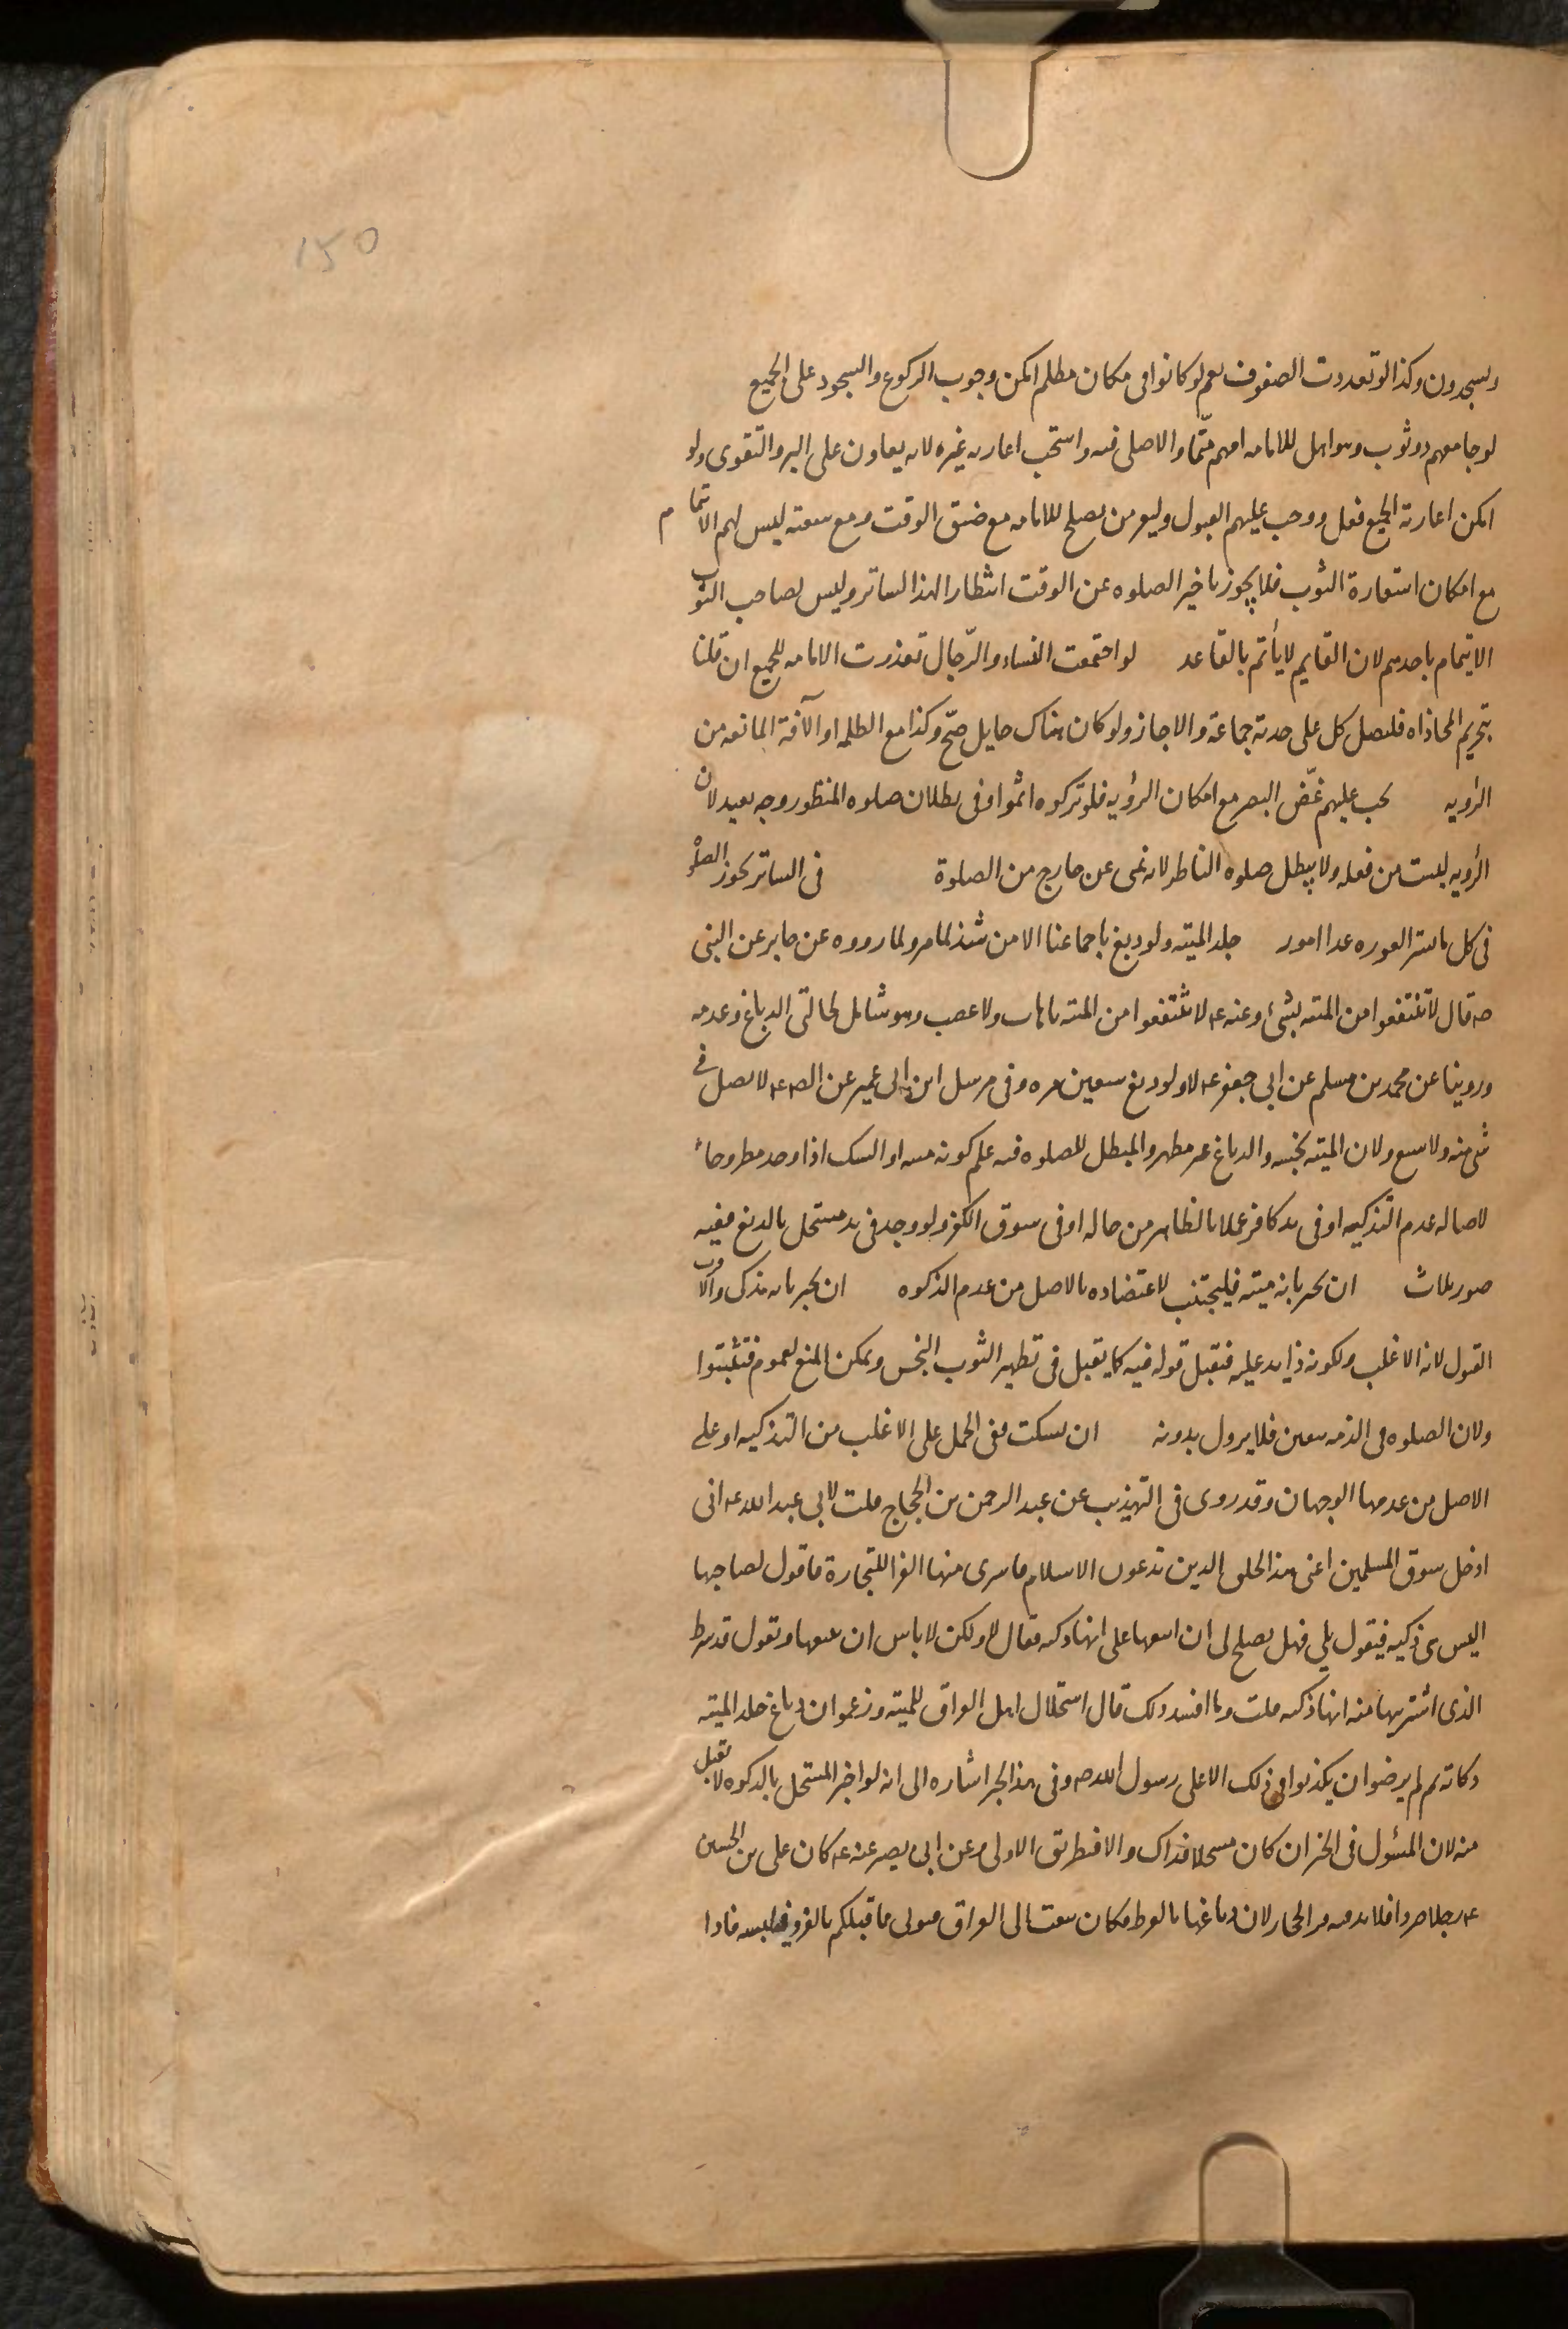 150
ويسجدون وكذا لو تعددت الصفوف نعم لو كانوا فى مكان مظلم امكن وجوب الركوع والسجود على الجميع
لو جا معهم ذو ثوب وهو اهل للامامه امهم متّما والا صلى فيه واستحب اعارته غيره لانه يعاون على البر والتقوى ولو
امكن اعارته الجميع فعل ووجب عليهم القبول وليعر من يصلح للامامه مع ضيق الوقت ومع سعته ليس لهم الاتمام
مع امكان استعارة الثوب فلا يجوز تاخير الصلوه عن الوقت انتظارا لهذا الساتر وليس لصاحب الثوب
الايتمام باحدهم لان القايم لا يأتم بالقاعد لو اجتمعت النساء والرّجال تعذرت الامامه للجميع ان قلنا
بتحريم المحاذاه فليصل كل على حدته جماعة والا جاز ولو كان هناك حايل صحّ وكذا مع الظلمه او الآفة المانعه من
الرؤيه يجب عليهم غضّ البصر مع امكان الرؤيه فلو تركوه اثموا وفى بطلان صلوه المنظور وجه بعيد لان
الرؤيه ليست من فعله ولا يبطل صلوه الناظر لانه نهى عن خارج من الصلوة فى الساتر تجوز الصلوه
فى كل ما ستر العوره عدا امور جلد الميته ولو دبغ باجماعنا الا من شذ لما مر ولما رووه عن جابر عن النبى
صه قال لا تنتفعوا من الميته بشئ وعنه عه لا تنتفعوا من الميته باهاب ولا عصب وهو شامل لحالتى الدباغ وعدمه
وروينا عن محمد بن مسلم عن ابى جعفر عه لا ولو دبغ سبعين مره وفى مرسل ابن ابى عمير عن الص عه لا تصل فى
شى منه ولا شسع ولان الميته نجسه والدباغ غير مطهر والمبطل للصلوه فيه علم كونه ميته او الشك اذا وجد مطروحا
لاصاله عدم التذكيه او فى يد كافر عملا بالظاهر من حاله او فى سوق الكفر ولو وجد فى يد مستحل بالدبغ ففيه
صور ثلاث ان يخبر بانه ميته فليجتنب لاعتضاده بالاصل من عدم الذكوه ان يخبر بانه مذكى والاقرب
القبول لانه الاغلب ولكونه ذا يد عليه فتقبل قوله فيه كما يقبل فى تطهير الثوب النجس ويمكن المنع لعموم فتثبتوا
ولان الصلوه فى الذمه بيقين فلا يزول بدونه ان يسكت ففى الحمل على الاغلب من التذكيه او على
الاصل من عدمها الوجهان وقد روى فى التهذيب عن عبد الرحمن بن الحجاج قلت لابى عبد الله عه انى
ادخل سوق المسلمين اعنى هذا الخلق الذين يدعون الاسلام فاشترى منها الفرا للتجارة فاقول لصاحبها
اليس هى ذكيه فيقول بلى فهل يصلح لى ان ابيعها على انها ذكيه فقال لا ولكن لا باس ان تبيعها وتقول قد شرط
الذى اشتريتها منه انها ذكيه قلت وما افسد ذلك قال استحلال اهل العراق للميته وزعموا ان دباغ جلد الميته
ذكاته ثم لم يرضوا ان يكذبوا فى ذلك الا على رسول الله صه وفى هذا الخبر اشاره الى انه لو اخبر المستحل بالذكوه لا تقبل
منه لان المسئول فى الخبر ان كان مستحلا فذاك والا فبطريق الاولى وعن ابى بصير عنه عه كان على بن الحسين
عه رجلا صردا فلا تدفيه فرا الحجاز لان دباغها بالقرظ فكان يبعث الى العراق فيوتى مما قبلكم بالفرو فيلبسه فاذا